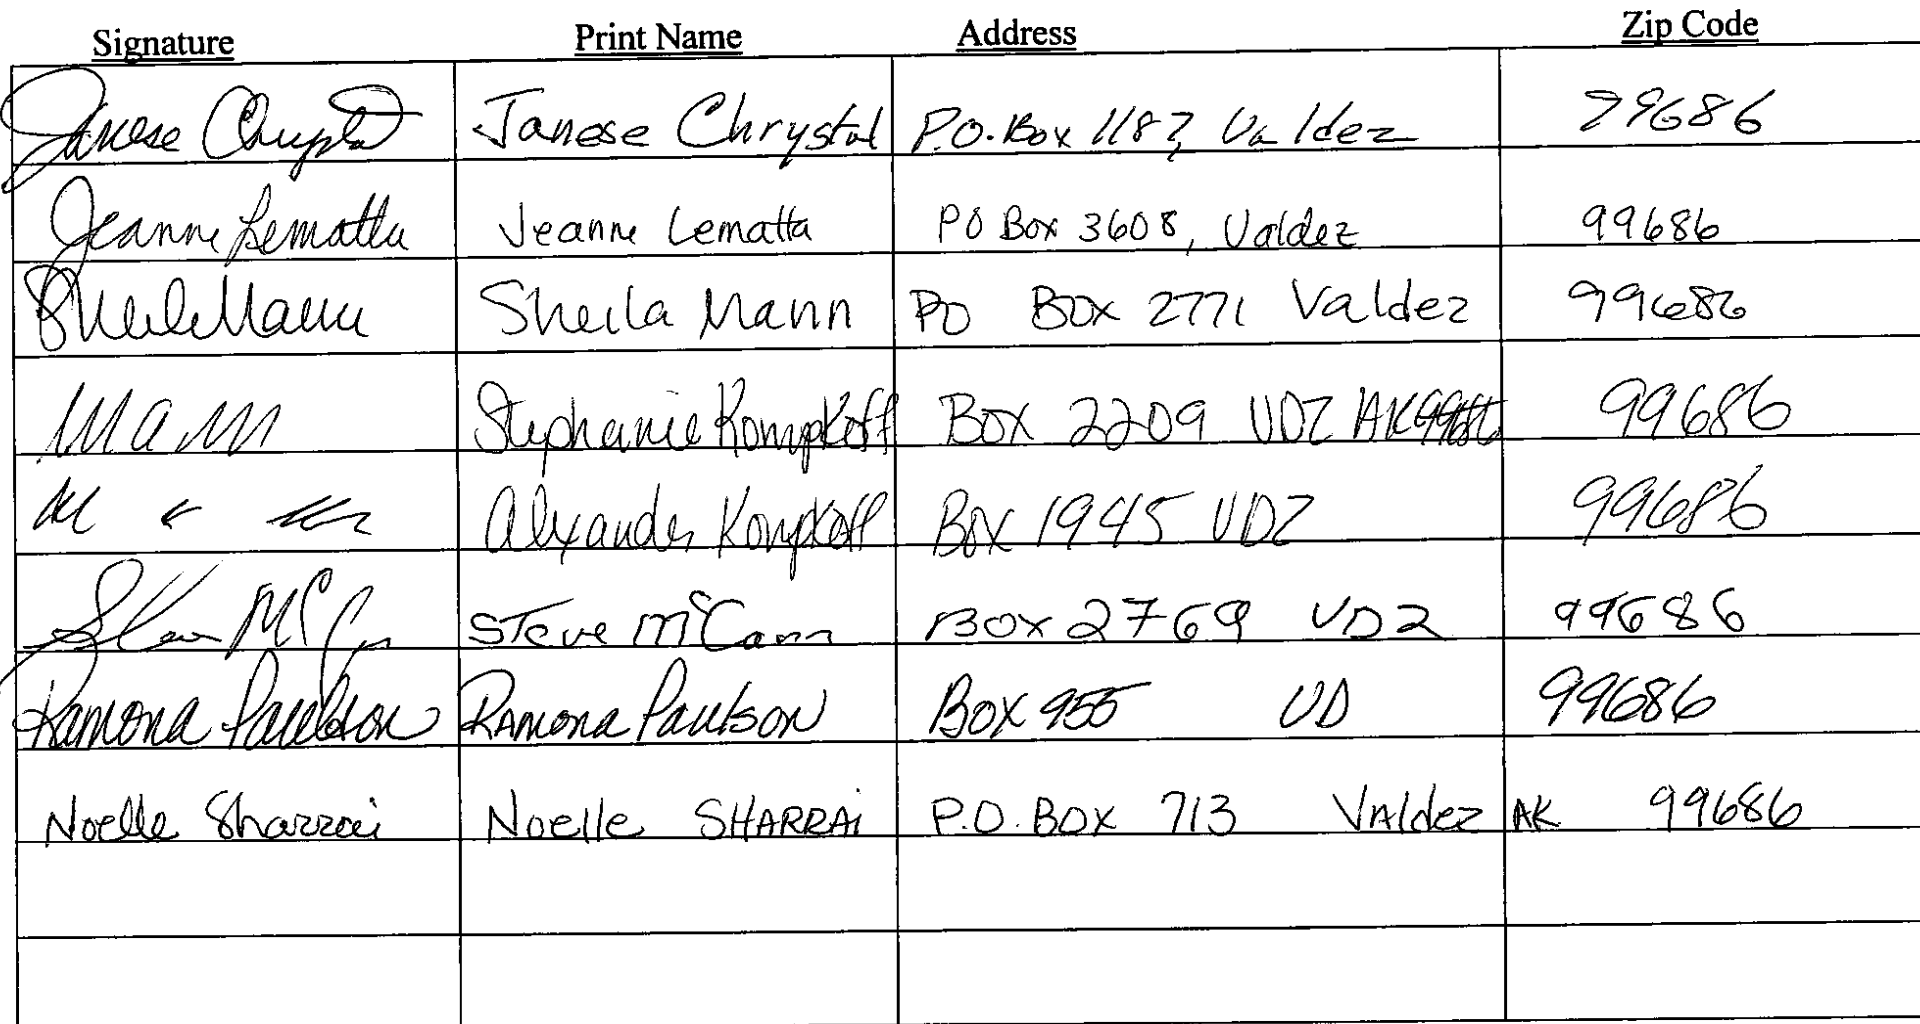 Signature Print Name Address Zip Code
Janese Chrystal Janese Chrystal P.O. Box 1187, Valdez 99686
Jeanne Lematta Jeanne Lematta PO Box 3608, Valdez 99686
Sheila Mann Sheila Mann PO BOX 2771 Valdez 99686
Stephanie Kompkoff Box 2209 VDZ AK 99686
Alexander Kompkoff Box 1945 VDZ 99686
Steve McCann Box 2769 VDZ 99686
Ramona Paulson Ramona Paulson Box 955 VD 99686
Noelle Sharrai Noelle SHARRAi P.O. BOX 713 VAldez AK 99686